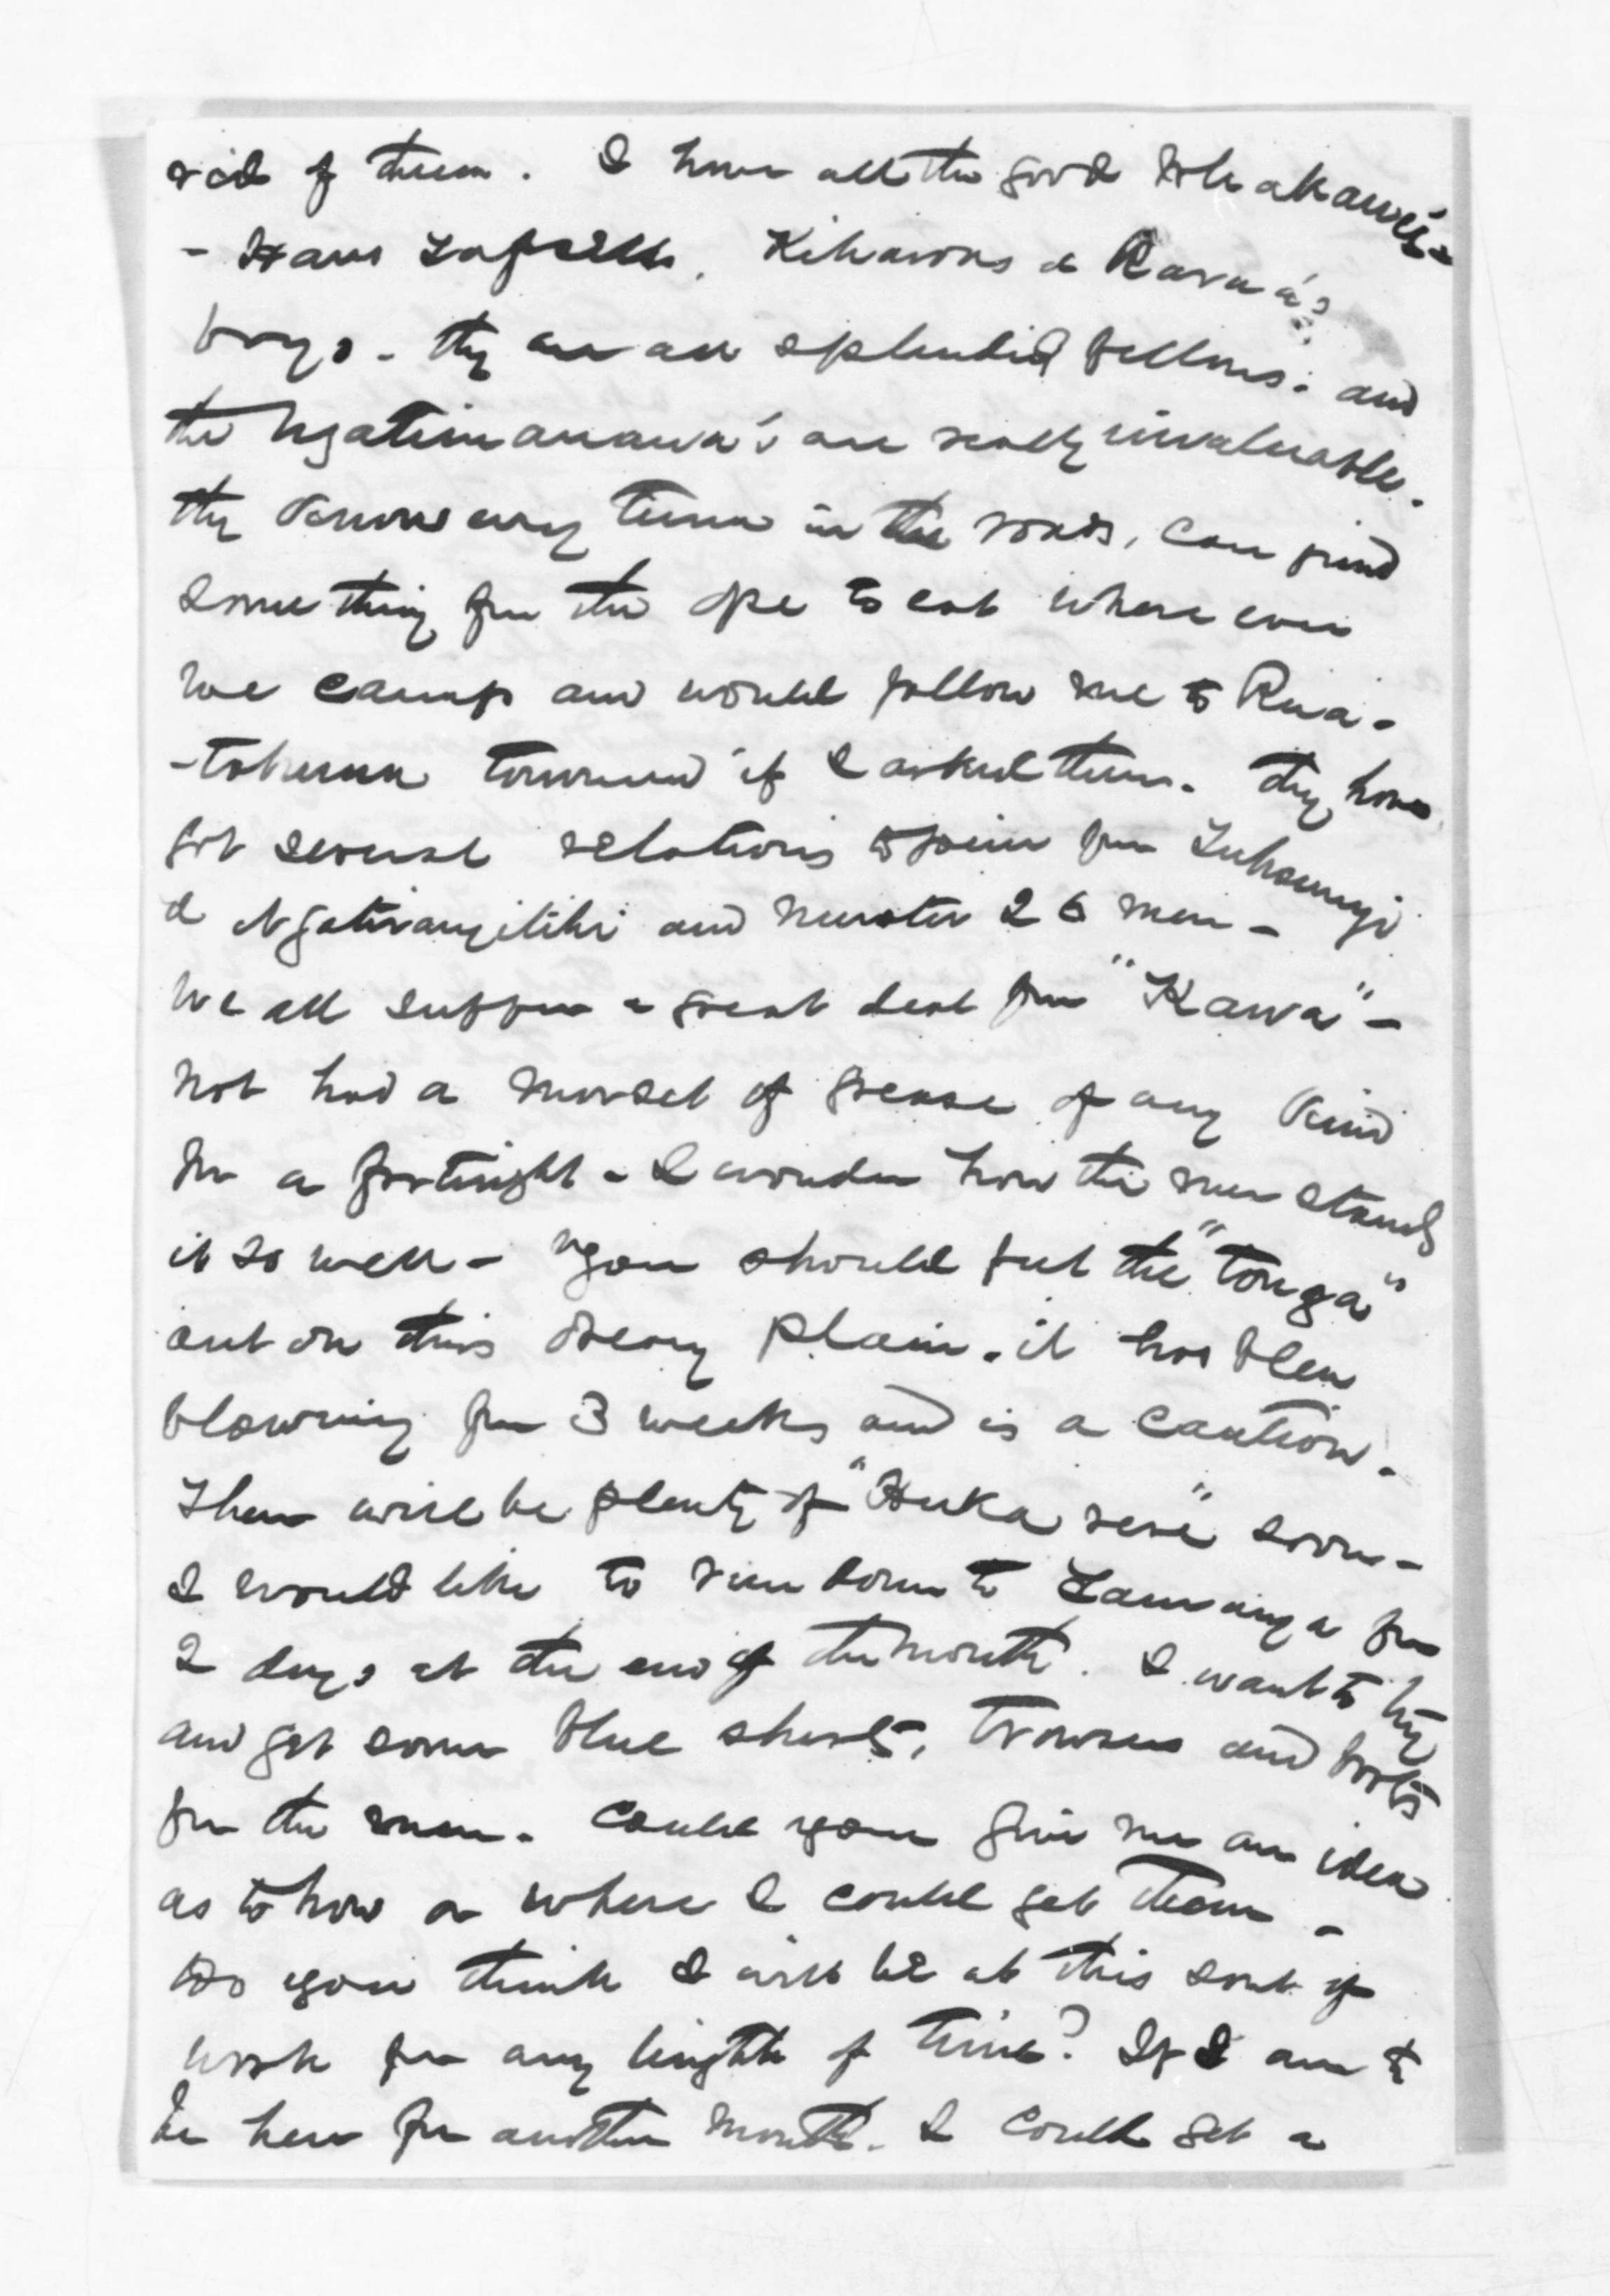 rid of them. I have all the good Whakaue's
- Hans Tapsell. Kiharoa & Rarua's
boys - they are all splendid fellows. and
the Ngatimanawa's are really invaluable.
they know every turn in the roads, can find
something for the ope to eat where ever
we camp and would follow me to Rua-
-tahuna tomorrow if I asked them. They have
got several relations to join from Tuhourangi
& Ngatirangitihi and muster 26 men -
we all suffer a great deal from "Kawa" -
not had a morsel of grease of any kind
for a fortnight - I wonder how the men stand
it so well - you should feel the "tonga"
out on this dreary plain. it has been
blowing for 3 weeks and is a caution.
There will be plenty of "Huka rere" soon -
I would like to run down to Tauranga for
2 days at the end of the month. I want to try
and get some blue shirts, trowsers and boots
for the men. Could you give me an idea
as to how or where I could get them -
Do you think I will be at this sort of
work for any length of time? If I am to
be here for another month. I could get a